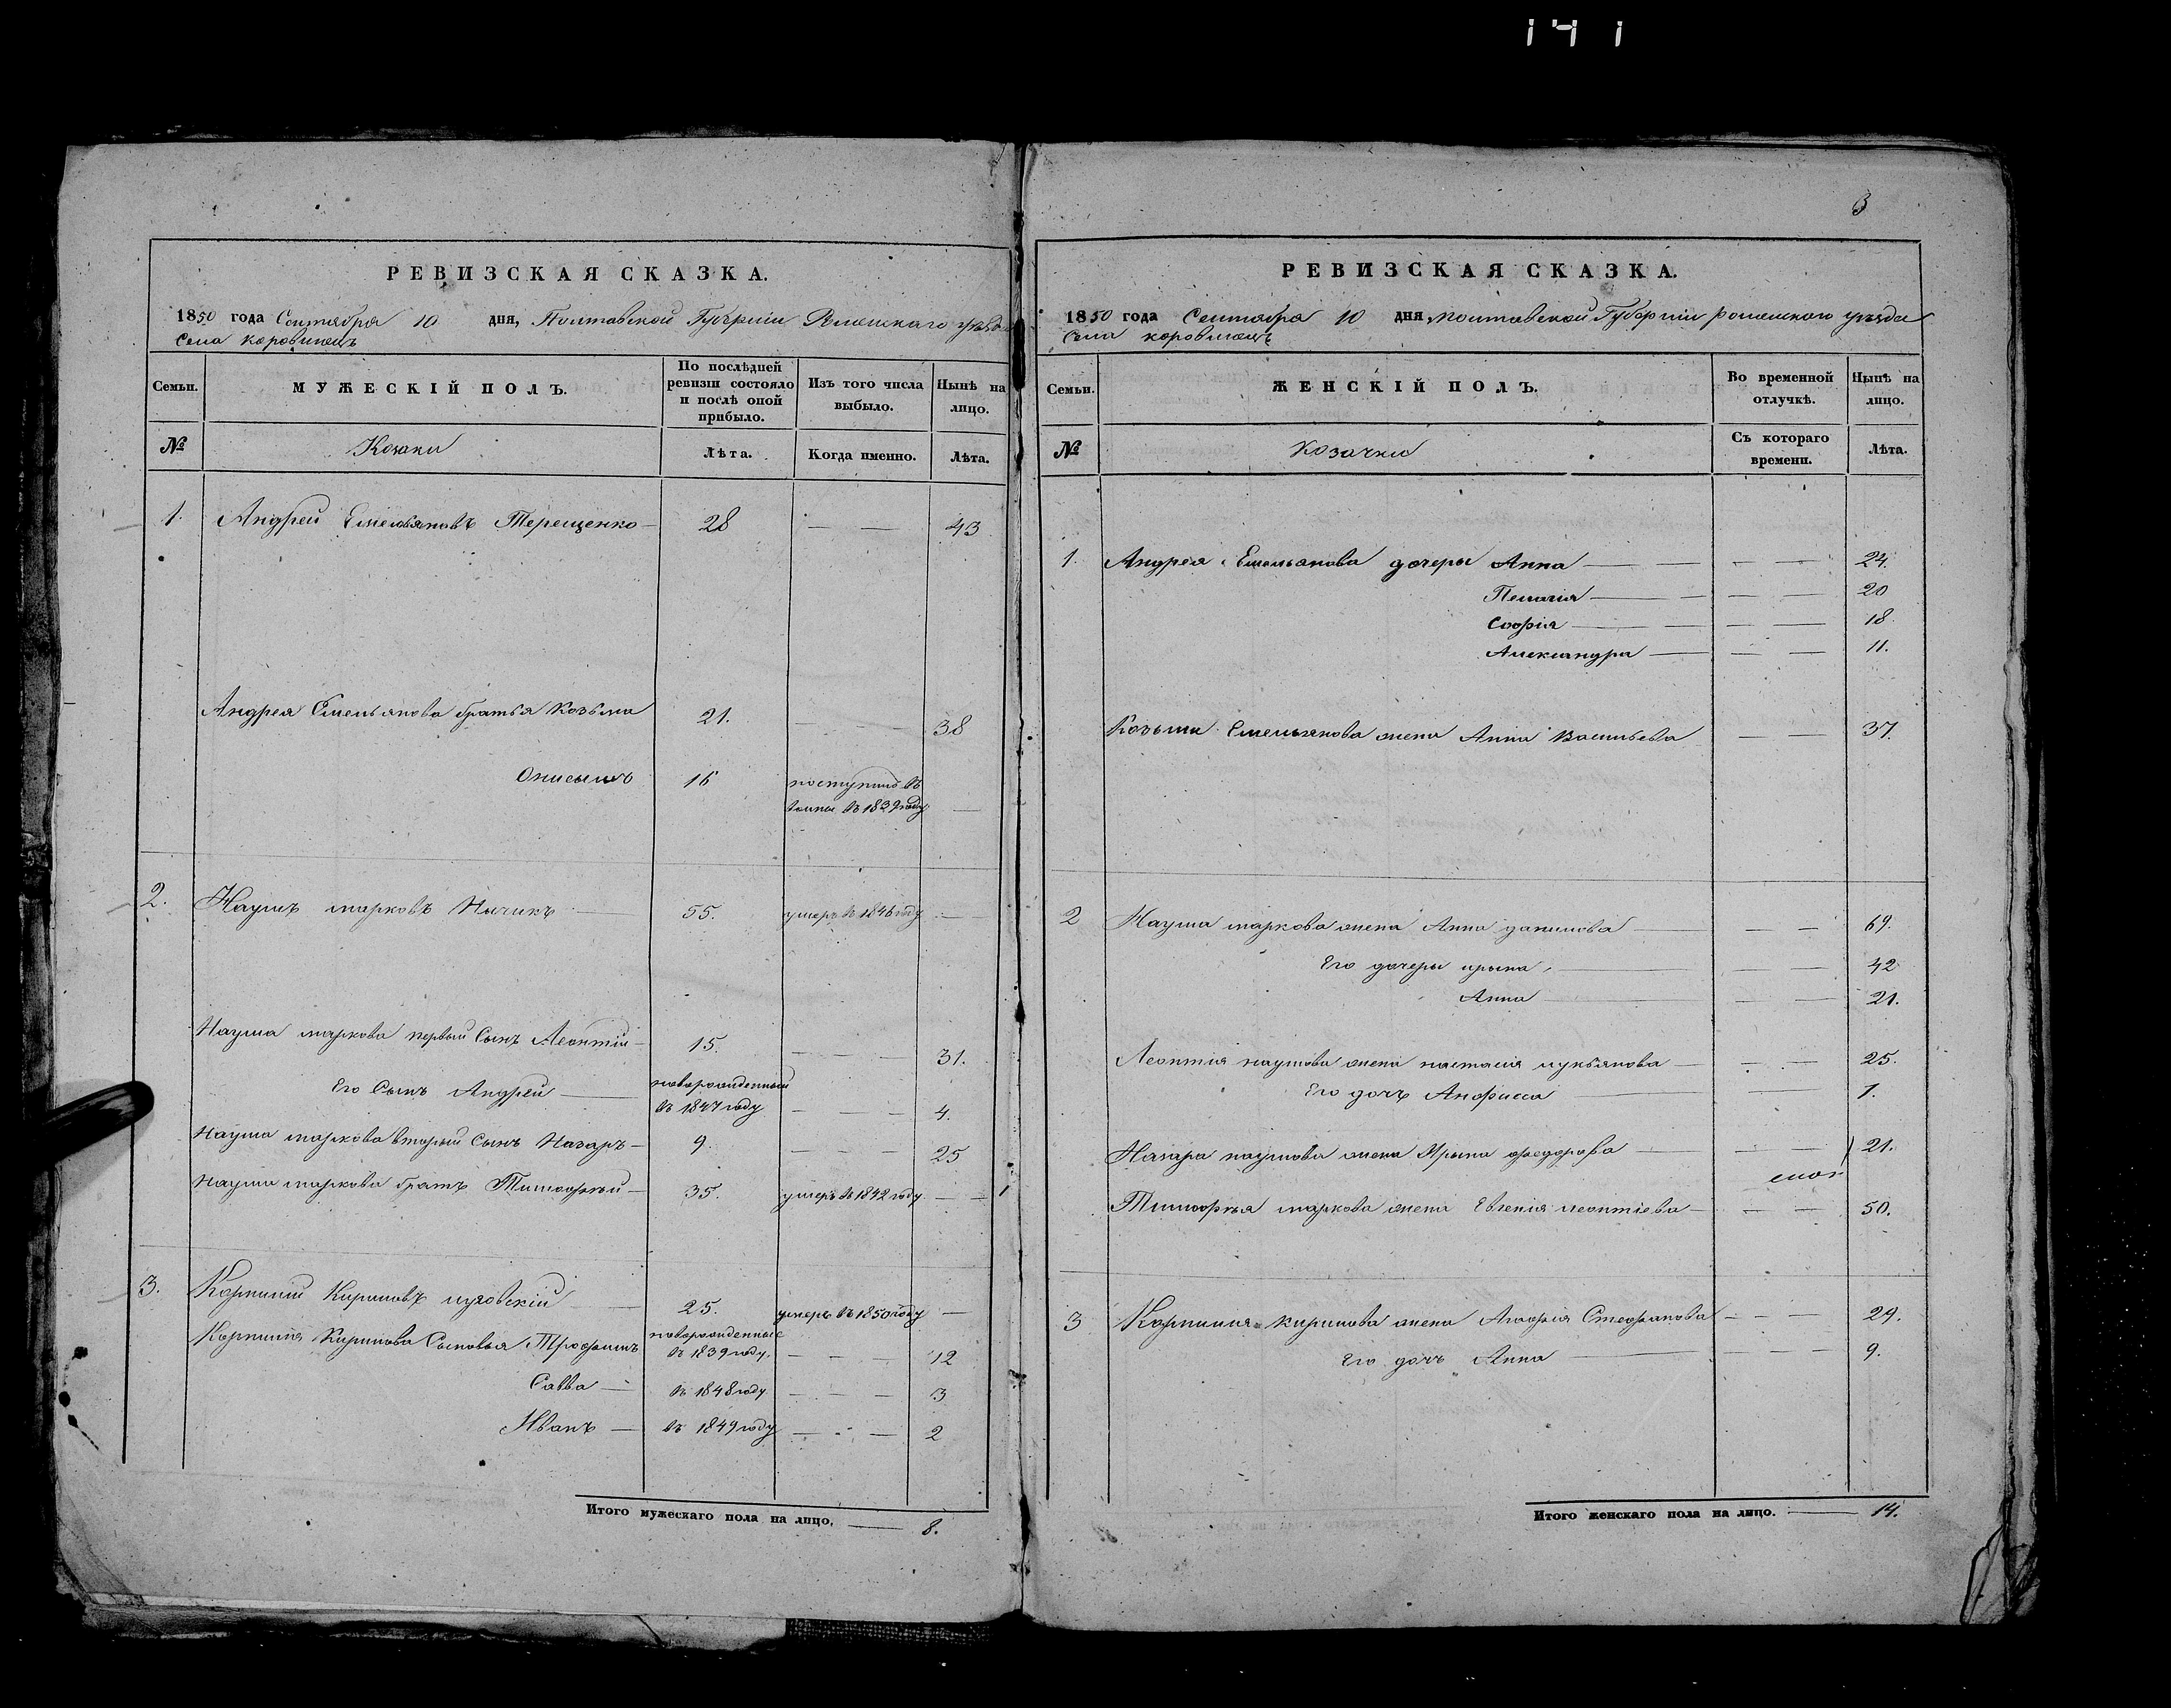 141
РЕВИЗСКАЯ СКАЗКА.
1850 года Сентября 10 дня, Полтавской Губерніи Роменскаго уѣзда
Села Коровинецъ
Семьи. МУЖЕСКІЙ ПОЛЪ. По послѣдней ревизіи состояло и послѣ оной прибыло. Изъ того числа выбыло. Нынѣ на лицо.
№ Козаки Лѣта. Когда именно. Лѣта.
1. Андрей Емельяновъ Терещенко — 28 — — 43
Андрея Емельянова братья Козьма 21. — — 38
Онисимъ 16 поступилъ въ
воины въ 1839 году —
2. Наумъ Марковъ 55. умеръ въ 1846 году —
Наума Маркова первый Сынъ Леонтій — 15. — — — 31.
Его Сынъ Андрей — новорожденный
въ 1847 году — — — 4.
Наума Маркова вторый Сынъ Назаръ — 9. — — — 25
Наума Маркова братъ Тимофѣй — 35. умеръ въ 1842 году — —
3. Корнилій Кириловъ — 25. умеръ въ 1850 году —
Корнилія Кирилова Сыновья Трофимъ новорожденные
въ 1839 году, — — — 12
Савва — въ 1848 году — — — 3
Иванъ — въ 1849 году — — — 2
Итого мужескаго пола на лицо. — 8.
3
РЕВИЗСКАЯ СКАЗКА.
1850 года Сентября 10 дня, Полтавской Губерніи Роменскаго уѣзда
Села Коровинецъ
Семьи. ЖЕНСКІЙ ПОЛЪ. Во временной отлучкѣ. Нынѣ на лицо.
№ Козачки Съ котораго времени. Лѣта.
1. Андрея Емельянова дочери Анна — — — — 24.
Пелагія — — — — 20
Софія — — — — 18.
Александра — — — 11.
Козьмы Емельянова жена Анна Васильева — — 37.
2 Наума Маркова жена Анна Данилова — — — 69.
Его дочери Ирина — — — 42
Анна — — — 21.
Леонтія Наумова жена Настасія Лукьянова — — — 25.
Его дочь Анфиса — — — 1.
Назара Наумова жена Ирина Федорова — — — 21.
Тимофѣя Маркова жена Евгенія Леонтіева — — — 50.
3 Корнилія Кирилова жена Агафія Стефанова — — — 29.
Его дочь Анна — — — 9.
Итого женскаго пола на лицо. — 14.